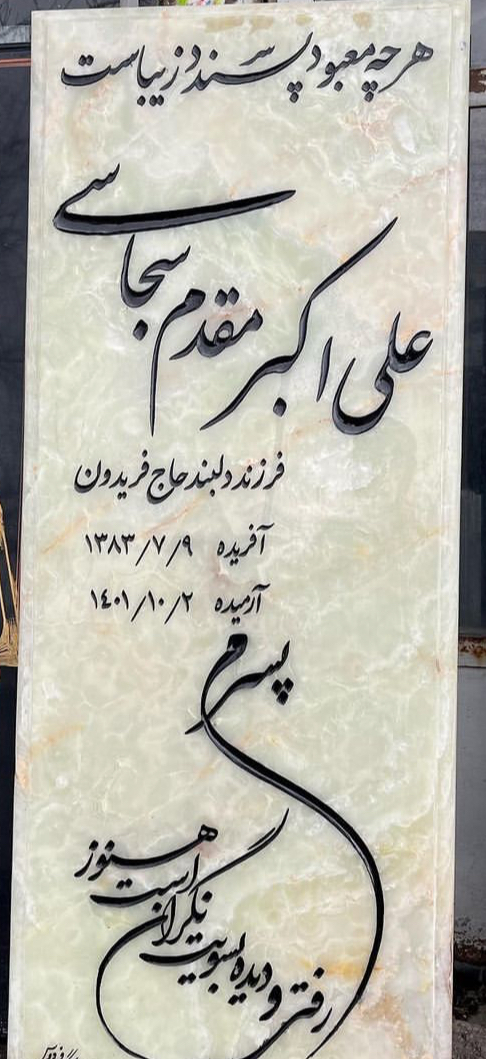 هرچه معبود پسندد زیباست
علی اکبر مقدم سجاسی
فرزند دلبند حاج فریدون
آفریده ۱۳۸۳/۷/۹
آرمیده ۱۴۰۱/۱۰/۲
پسرم
رفتی و دیده بسویت
نگران است هنوز